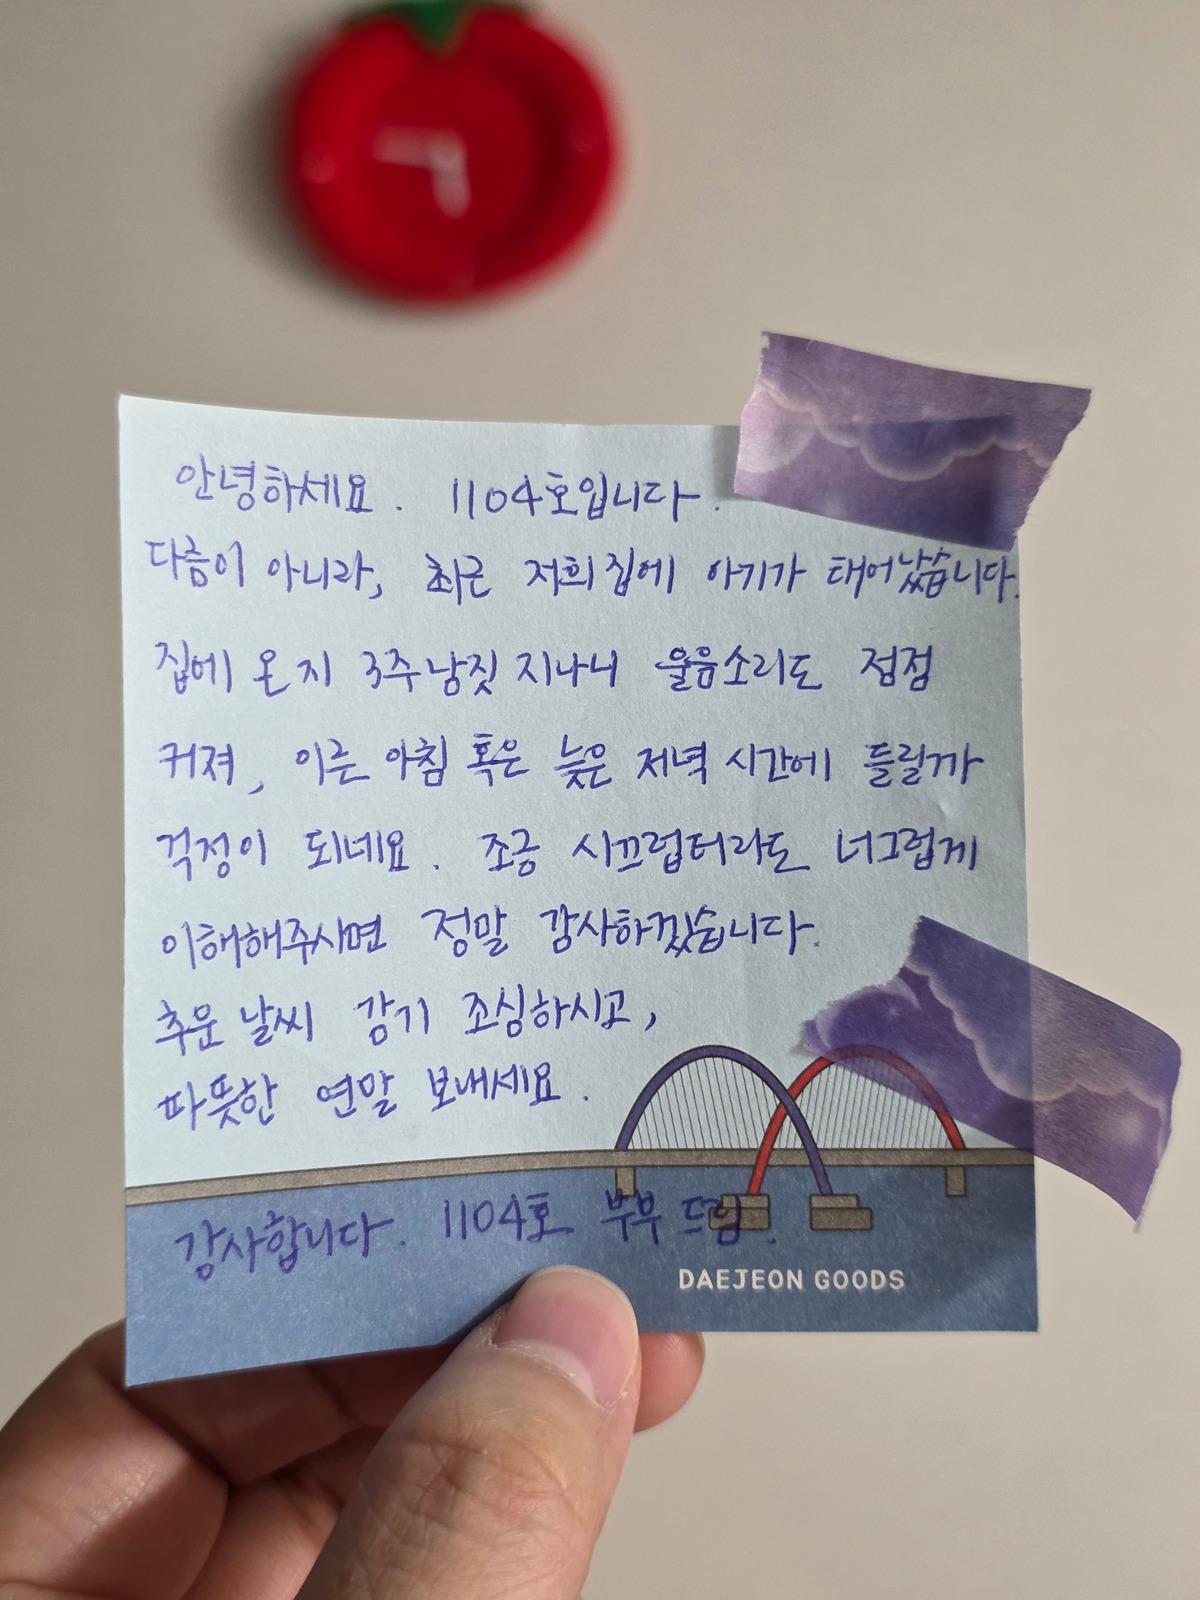 안녕하세요. 1104호입니다.
다름이 아니라, 최근 저희 집에 아기가 태어났습니다.
집에 온지 3주남짓 지나니 울음소리도 점점
커져, 이른 아침 혹은 늦은 저녁 시간에 들릴까
걱정이 되네요. 조금 시끄럽더라도 너그럽게
이해해주시면 정말 감사하겠습니다.
추운 날씨 감기 조심하시고,
따뜻한 연말 보내세요.
감사합니다. 1104호 부부 드림.
DAEJEON GOODS